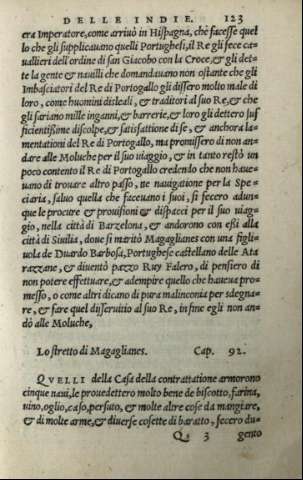 DELLE INDIE. 123
era Imperatore, come arriuò in Hispagna, che facesse quel
lo che gli supplicauano quelli Portughesi, il Re gli fece ca=
uallieri dell'ordine di san Giacobbo con la Croce, & gli det=
te la gente & nauilli che domandauano non ostante che gli
Imbasciatori del Re di Portogallo gli dissero molto male di
loro, come huomini disleali, & traditori al suo Re, & che
gli fariano mille inganni, & barrerie, & loro gli dettero suf
ficientissime discolpe, & satisfattione di se, & anchora la=
mentationi del Re di Portogallo, ma promissero di non an=
dare alle Moluche per il suo uiaggio, & in tanto restò un
poco contento il Re di Portogallo credendo che non haue=
uano di trouare altro passo, ne nauigatione per la Spe=
ciaria, saluo quella che faceuano i suoi, si fecero adun=
que le procure & prouisioni & dispacci per il suo uiag=
gio, nella città di Barzelona, & andorono con essi alla
città di Siuilia, doue si maritò Magaglianes con una figli=
uola de Duardo Barbosa, Portughese castellano delle Ata
razzane, & diuentò pazzo Ruy Falero, di pensiero di
non potere effettuare, & adempire quello che haueua pro=
messo, o come altri dicano di pura malinconia per sdegna=
re, & fare quel disseruitio al suo Re, in fine egli non an=
dò alle Moluche,
Lo stretto di Magaglianes. Cap. 92.
QVELLI della Casa della contrattatione armorono
cinque naui, le prouedettero molto bene de biscotto, farina,
uino, oglio, caso, persuto, & molte altre cose da mangiare,
& di molte arme, & diuerse cosette di baratto, fecero du=
Q 3 gento